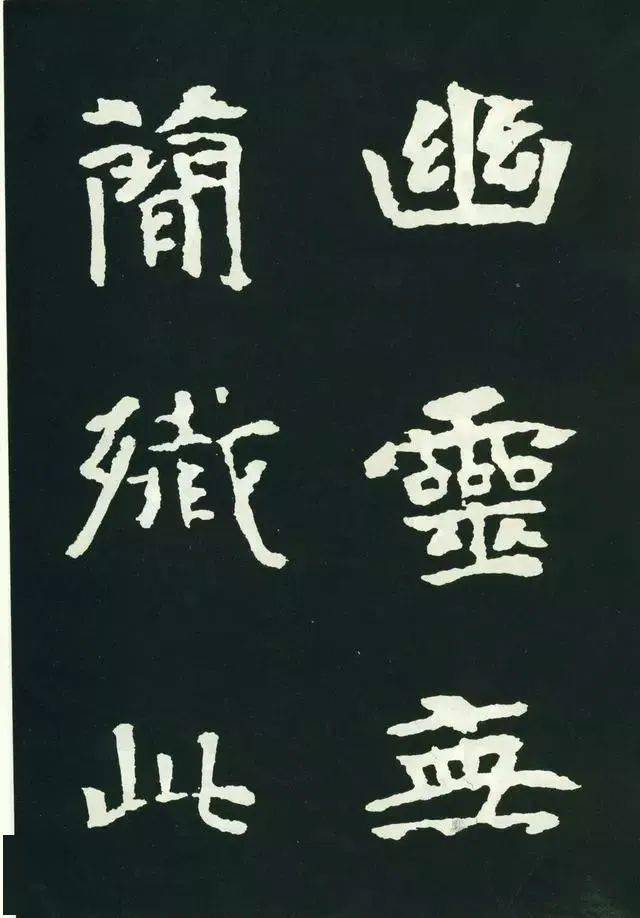 幽靈無
簡殲此